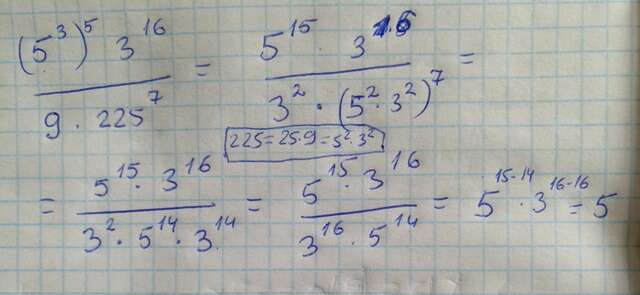 (5³)⁵ 3¹⁶ / 9 · 225⁷ = 5¹⁵ · 3¹⁶ / 3² · (5² · 3²)⁷ =
225 = 25·9 = 5²·3²
= 5¹⁵ · 3¹⁶ / 3² · 5¹⁴ · 3¹⁴ = 5¹⁵ · 3¹⁶ / 3¹⁶ · 5¹⁴ = 5¹⁵⁻¹⁴ · 3¹⁶⁻¹⁶ = 5